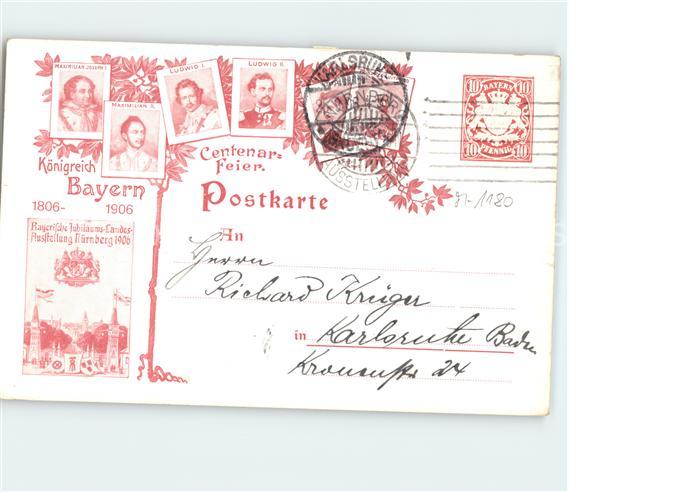 MAXIMILIAN JOSEPH I.
MAXIMILIAN II.
LUDWIG I.
LUDWIG II.
Königreich
Bayern
1806- 1906
Centenar-
Feier.
Postkarte
10 BAYERN 10
10 PFENNIG 10
Bayerische Jubiläums-Landes-
Ausstellung Nürnberg 1906
An
Herrn
Richard Krüger
in Karlsruhe Baden
Kronenstr 24